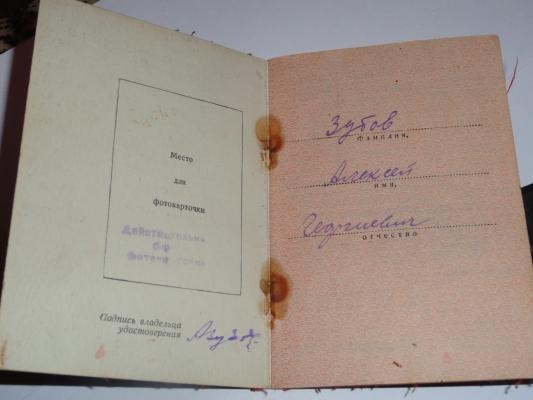 Место
для
фотокарточки
Действительно
без
фотокарточки
Подпись владельца
удостоверения
АЗубов
Зубов
фамилия,
Алексей
имя,
Георгиевич
отчество